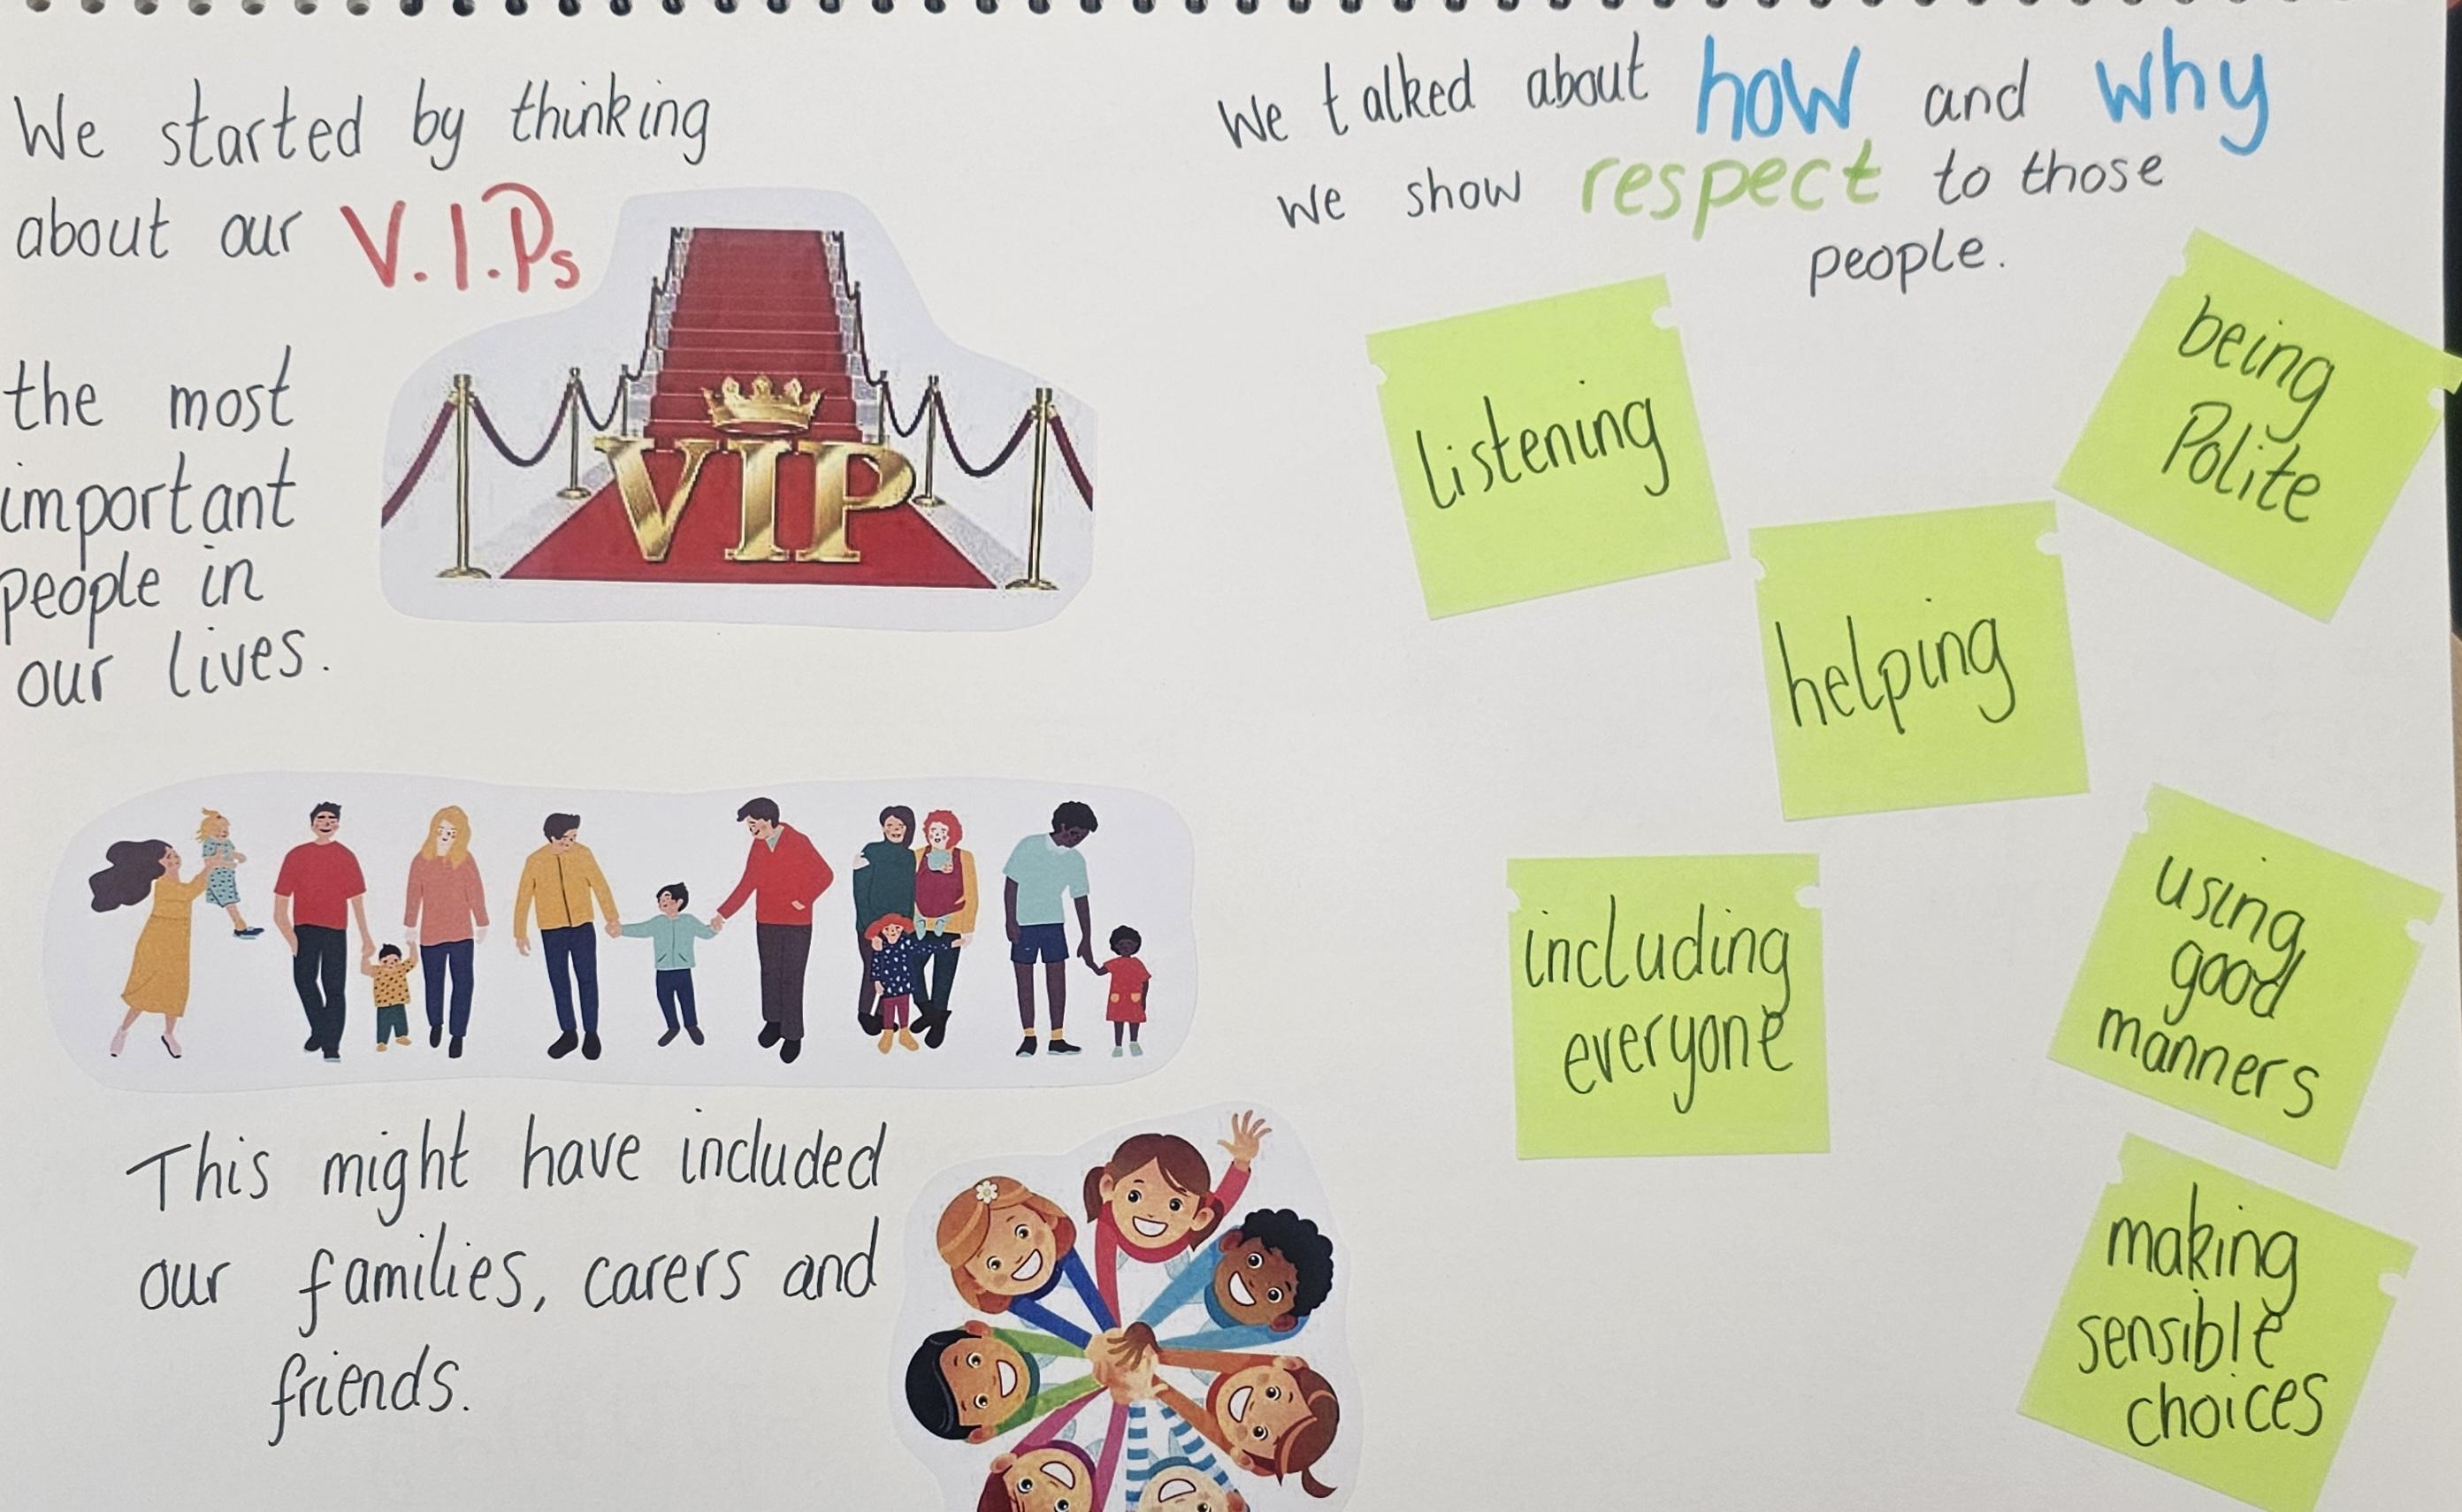 We started by thinking
about our V.I.Ps
the most
important
people in
our lives.
VIP
This might have included
our families, carers and
friends.
We talked about how and why
we show respect to those
people.
listening
being
Polite
helping
including
everyone
using
good
manners
making
sensible
choices